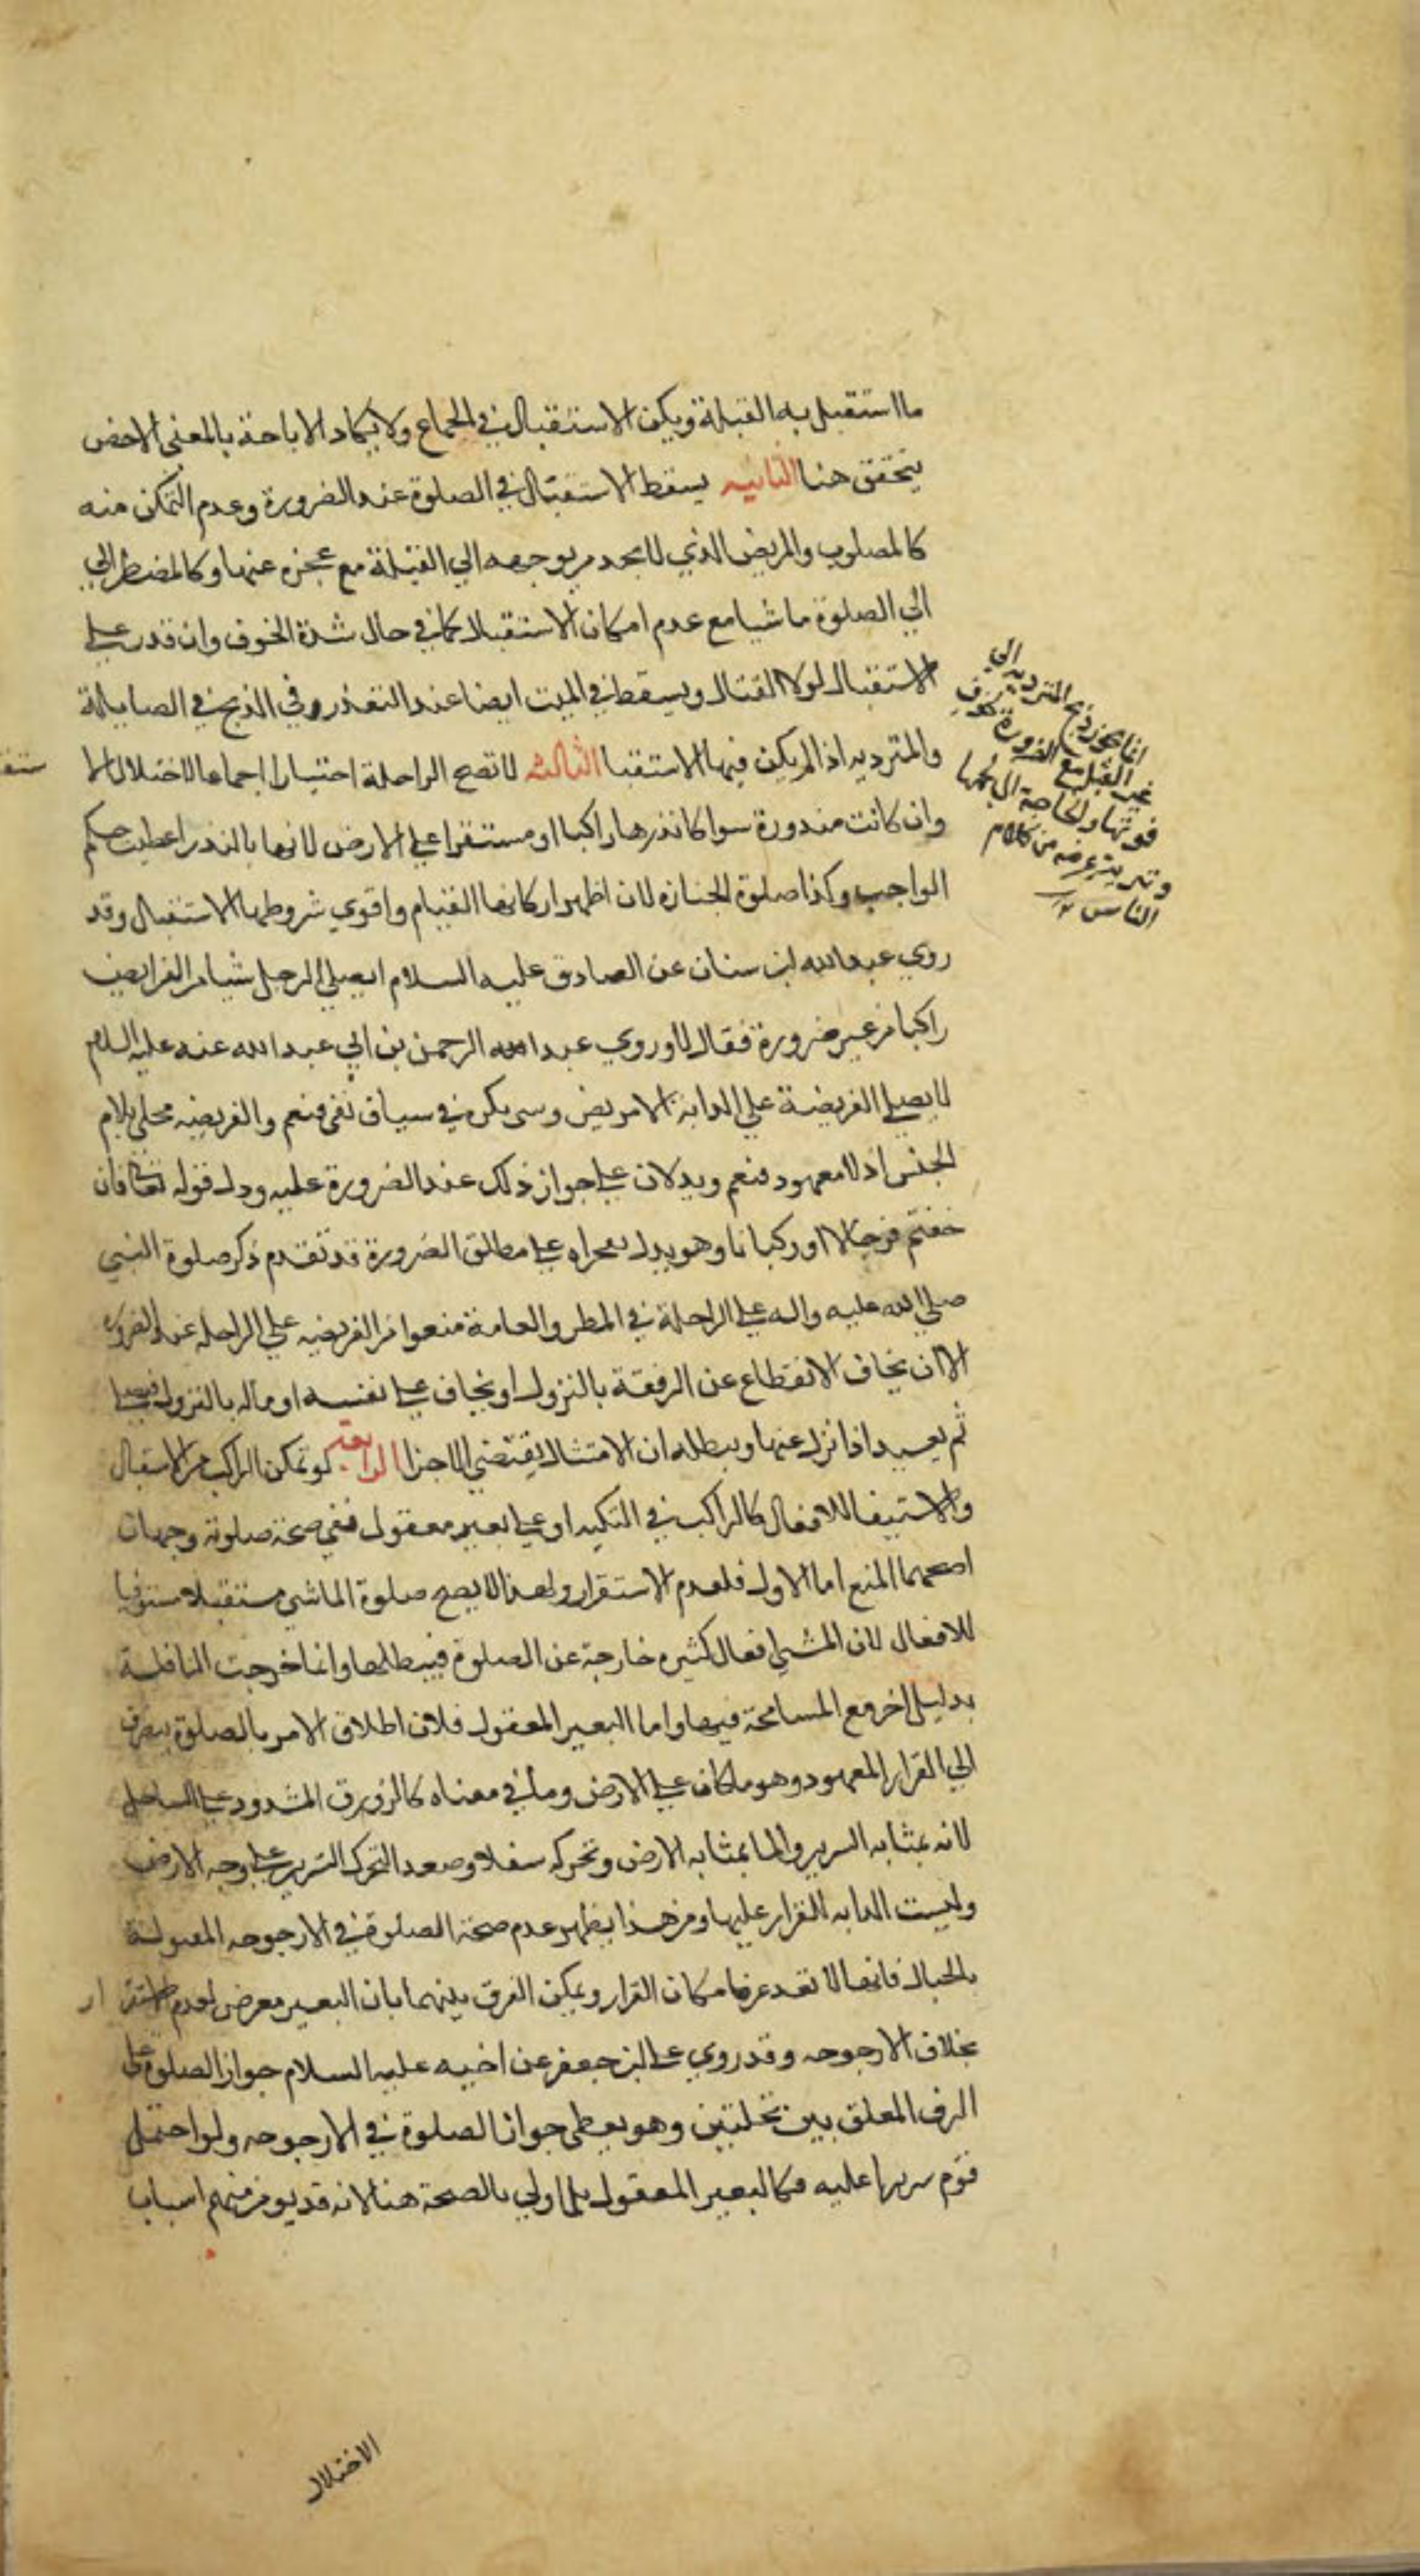 ما استقبل به القبلة ويكره الاستقبال في الجماع ولا يكاد الاباحة بالمعنى الاخص
يتحقق هنا الثانيه يسقط الاستقبال في الصلوة عند الضرورة وعدم التمكن منه
كالمصلوب والمريض الذي لا يجد من يوجهه الي القبلة مع عجزه عنها وكالمضطر الي
الي الصلوة ماشيا مع عدم امكان الاستقبال كما في حال شدة الخوف وان قدر علي
الاستقبال لولا القتال ويسقط في الميت ايضا عند التعذر وفي الذبح في الصايلة
والمترديه اذا لم يكن فيها الاستقبا الثالثه لا تصح الراحلة اختيارا اجماعا لاختلال الا
وان كانت منذورة سوا كان نذرها راكبا او مستقرا علي الارض لانها بالنذر اعطيت حكم
الواجب وكذا صلوة الجنازه لان اظهر اركانها القيام واقوي شروطها الاستقبال وقد
روي عبد الله ابن سنان عن الصادق عليه السلام ايصلي الرجل شيا من الفرايض
راكبا من غير ضرورة فقال لا وروي عبد الله الرحمن بن ابي عبد الله عنه عليه السلام
لا يصلي الفريضة علي الدابة الا مريض وسى بكره في سياق نفي فيعم والفريضه محلي بلام
الجنس اذ لا معهود فيعم ويدلان علي جواز ذلك عند الضرورة عليه ودل قوله تعالى فان
خفتم فرجالا او ركبانا وهو يدل بفحواه علي مطلق الضرورة قد تقدم ذكر صلوة النبي
صلي الله عليه واله علي الراحلة في المطر والعامة منعوا من الفريضه علي الراحله عند الضرورة
الا ان يخاف الانقطاع عن الرفقة بالنزول او يخاف علي نفسه او ماله بالنزول فيصلي
ثم يعيد اذا نزل عنها ويبطله ان الامتثال يقتضي الاجزا الرابعة لو تمكن الراكب من الاستقبال
والاستيفا للافعال كالراكب في الكنيسه او علي بعير معقول ففي صحة صلوته وجهان
اصحهما المنع اما الاول فلعدم الاستقرار ولهذا لا يصح صلوة الماشي مستقبلا مستوفيا
للافعال لان المشي افعال كثيره خارجة عن الصلوة فيبطلها وانما خرجت النافلة
بدليل اخر مع المسامحة فيها واما البعير المعقول فلان اطلاق الامر بالصلوة ينصرف
الي القرار المعهود وهو ما كان علي الارض وما في معناه كالزورق المشدود علي الساحل
لانه بمثابه السرير والما بمثابه الارض وتحركه سفلا وصعدا كتحرك السرير علي وجه الارض
وليست الدابه للقرار عليها ومن هذا يظهر عدم صحة الصلوة في الارجوحه المعموله
بالحبال فانها لا تعد عرفا مكان القرار ويمكن الفرق بينهما بان البعير معرض لعدم الاستقرار
بخلاف الارجوحه وقد روي علي ابن جعفر عن اخيه عليه السلام جواز الصلوة علي
الرف المعلق بين نخلتين وهو يعطي جواز الصلوة في الارجوحه ولو احتمل
قوم سريرا عليه فكالبعير المعقول بل اولي بالصحة هنا لانه قد يومن منهم اسباب
الاختلال
انما يجوز ذبح المترديه الي
غير القبلة مع الضرورة كخوف
فوتها والحاجة الي لحمها
عرضه من كلام
الناس